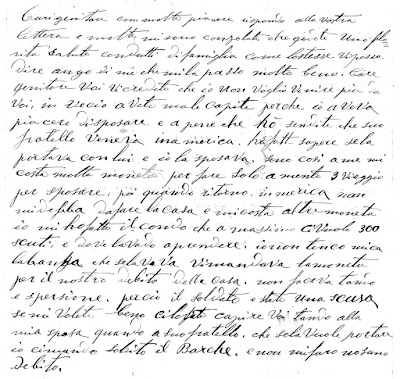 Cari genitori con molto piacere rispondo alla vostra
lettera e molto mi sono consolato che godete Una flo=
rita Salute con tutti di famiglia come lo stesse vi posso
dire an go di me che mi la passo molto bene. Care
genitore Voi Vi credete che io non Voglio Venire piu da
Voi, in Vecio aVete male Capito perche io aVeVa
piacere di sposare e a pene che hò sendito che suo
fratello VeneVa in america, hò fatt sapere se la
portava con lui e io la sposava, sono cosi a me mi
costa molto moneta per fare Solo a mente 3 Viaggio
per sposare, poi quando ritorno in merica non
mi da fare la casa e mi costa altre moneta
io mi ho fatto il condo che a massimo Ci Vuole 300
scuti, e doVe la Vado a prendere, io non tengo mica
la banga che se la VaVa Vi mandava la moneta
per il nostro debito della casa, non faceva tando
e spersione, percio il Soldato e stato una scusa
se mi Volete bene ci lo fate capire Voi tando alla
mia sposa quando a suo fratello, che se la Vuole portare
io ci mando subito il Barche, e non mi fare nesuno
Debito.